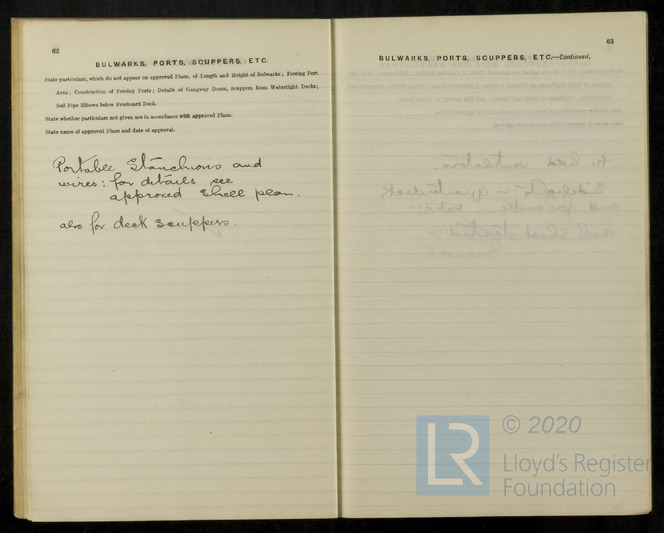 62
BULWARKS, PORTS, SCUPPERS, ETC.
State particulars, which do not appear on approved Plans, of Length and Height of Bulwarks; Freeing Port
Area; Construction of Freeing Ports; Details of Gangway Doors, Scuppers from Watertight Decks;
Soil Pipe Elbows below Freeboard Deck.
State whether particulars not given are in accordance with approved Plans.
State name of approved Plans and date of approval.
Portable Stanchions and
wires: for details see
approved Shell plan.
also for deck scuppers.
63
BULWARKS, PORTS, SCUPPERS, ETC.—Continued.
LR
© 2020
Lloyd's Register
Foundation